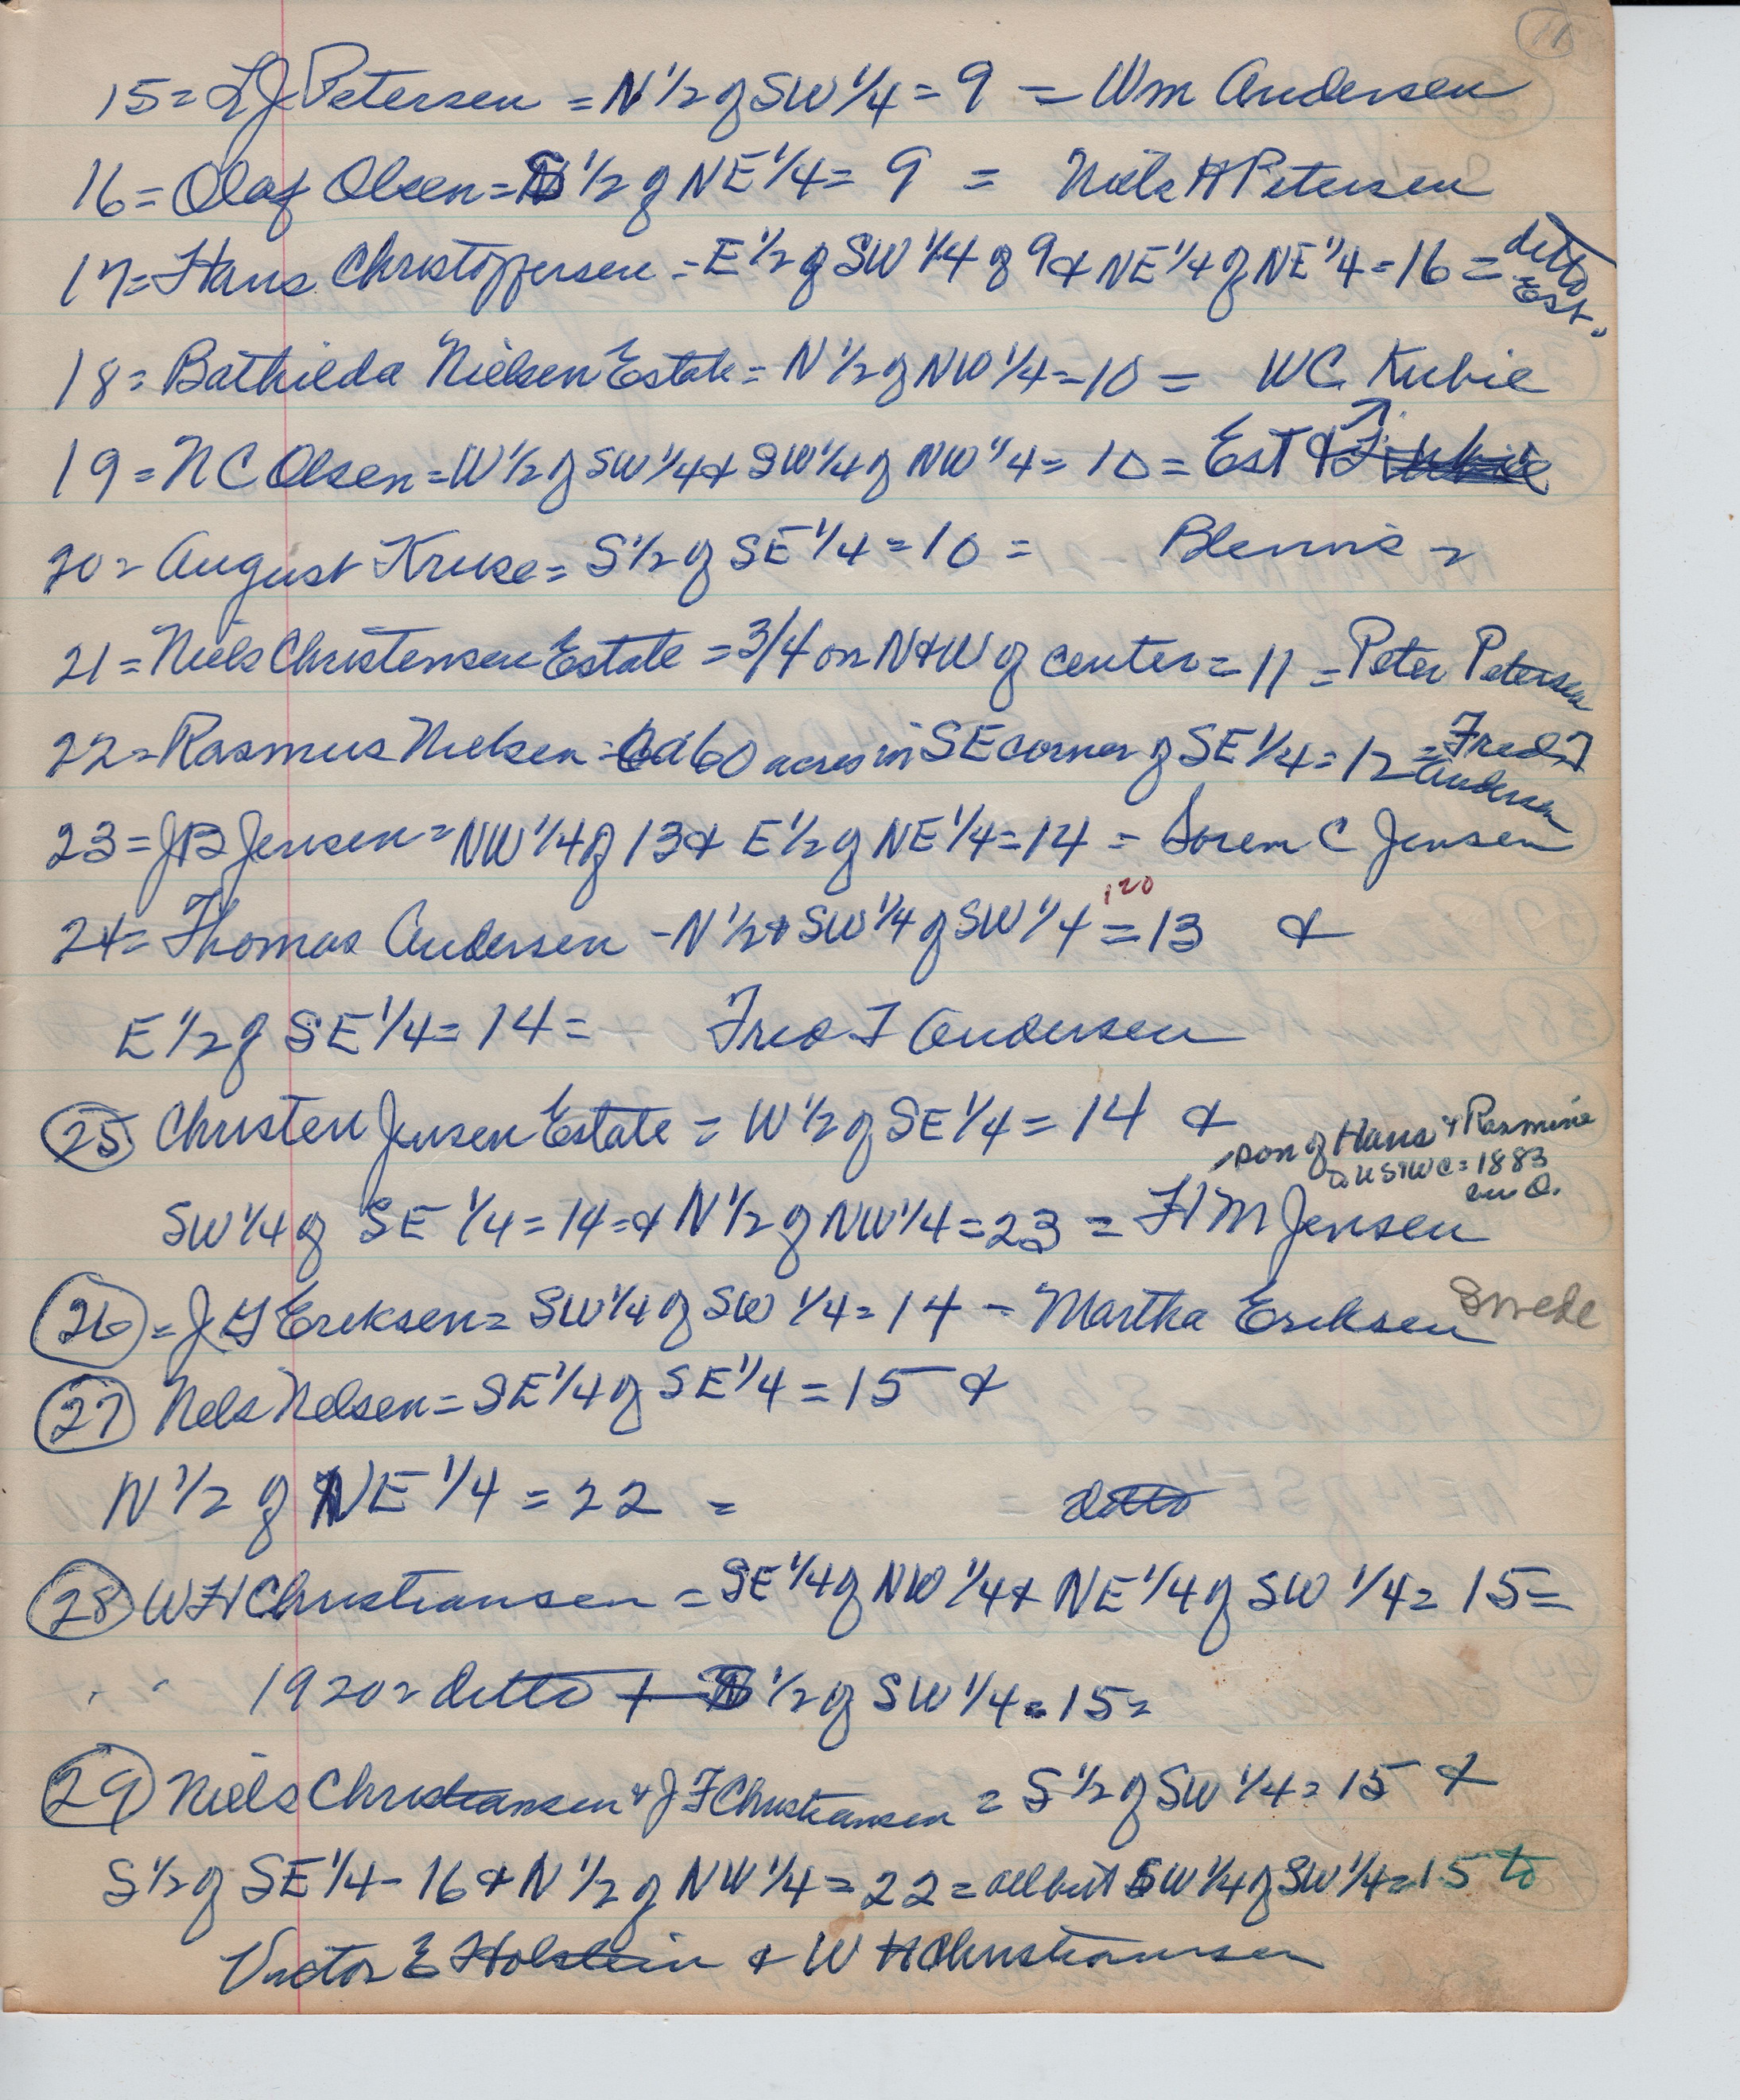 15 = L J Petersen = N 1/2 of SW 1/4 = 9 = Wm Andersen
16 = Olaf Olsen = S 1/2 of NE 1/4 = 9 = Niels H Petersen
17 = Hans Christoffersen = E 1/2 of SW 1/4 of 9 & NE 1/4 of NE 1/4 = 16 = ditto Est.
18 = Bathilda Nielsen Estate = N 1/2 of NW 1/4 = 10 = WC Kubie
19 = N C Olsen = W 1/2 of SW 1/4 & SW 1/4 of NW 1/4 = 10 = Est &
20 = August Kruse = S 1/2 of SE 1/4 = 10 =
21 = Niels Christensen Estate = 3/4 on N & W of center = 11 = Peter Petersen
22 = Rasmus Nielsen = 60 acres in SE corner of SE 1/4 = 12 = Fred J Andersen
23 = J B Jensen = NW 1/4 of 13 & E 1/2 of NE 1/4 = 14 = Soren C Jensen
120
24 = Thomas Andersen - N 1/2 & SW 1/4 of SW 1/4 = 13 &
E 1/2 of SE 1/4 = 14 = Fred J Andersen
25 Christen Jensen Estate = W 1/2 of SE 1/4 = 14 &
son of Hans & Rasmine
to US & WC = 1883
SW 1/4 of SE 1/4 = 14 = & N 1/2 of NW 1/4 = 23 = H M Jensen
26 = J G Eriksen = SW 1/4 of SW 1/4 = 14 - Martha Eriksen Swede
27 Nels Nelsen = SE 1/4 of SE 1/4 = 15 &
N 1/2 of NE 1/4 = 22 = ditto
28 W H Christiansen = SE 1/4 of NW 1/4 & NE 1/4 of SW 1/4 = 15 =
" " 1920 = ditto + N 1/2 of SW 1/4 = 15 =
29 Niels Christiansen & J F Christiansen = S 1/2 of SW 1/4 = 15 &
S 1/2 of SE 1/4 - 16 & N 1/2 of NW 1/4 = 22 = all but SW 1/4 of SW 1/4 = 15 to
Victor E Holstein & W H Christiansen